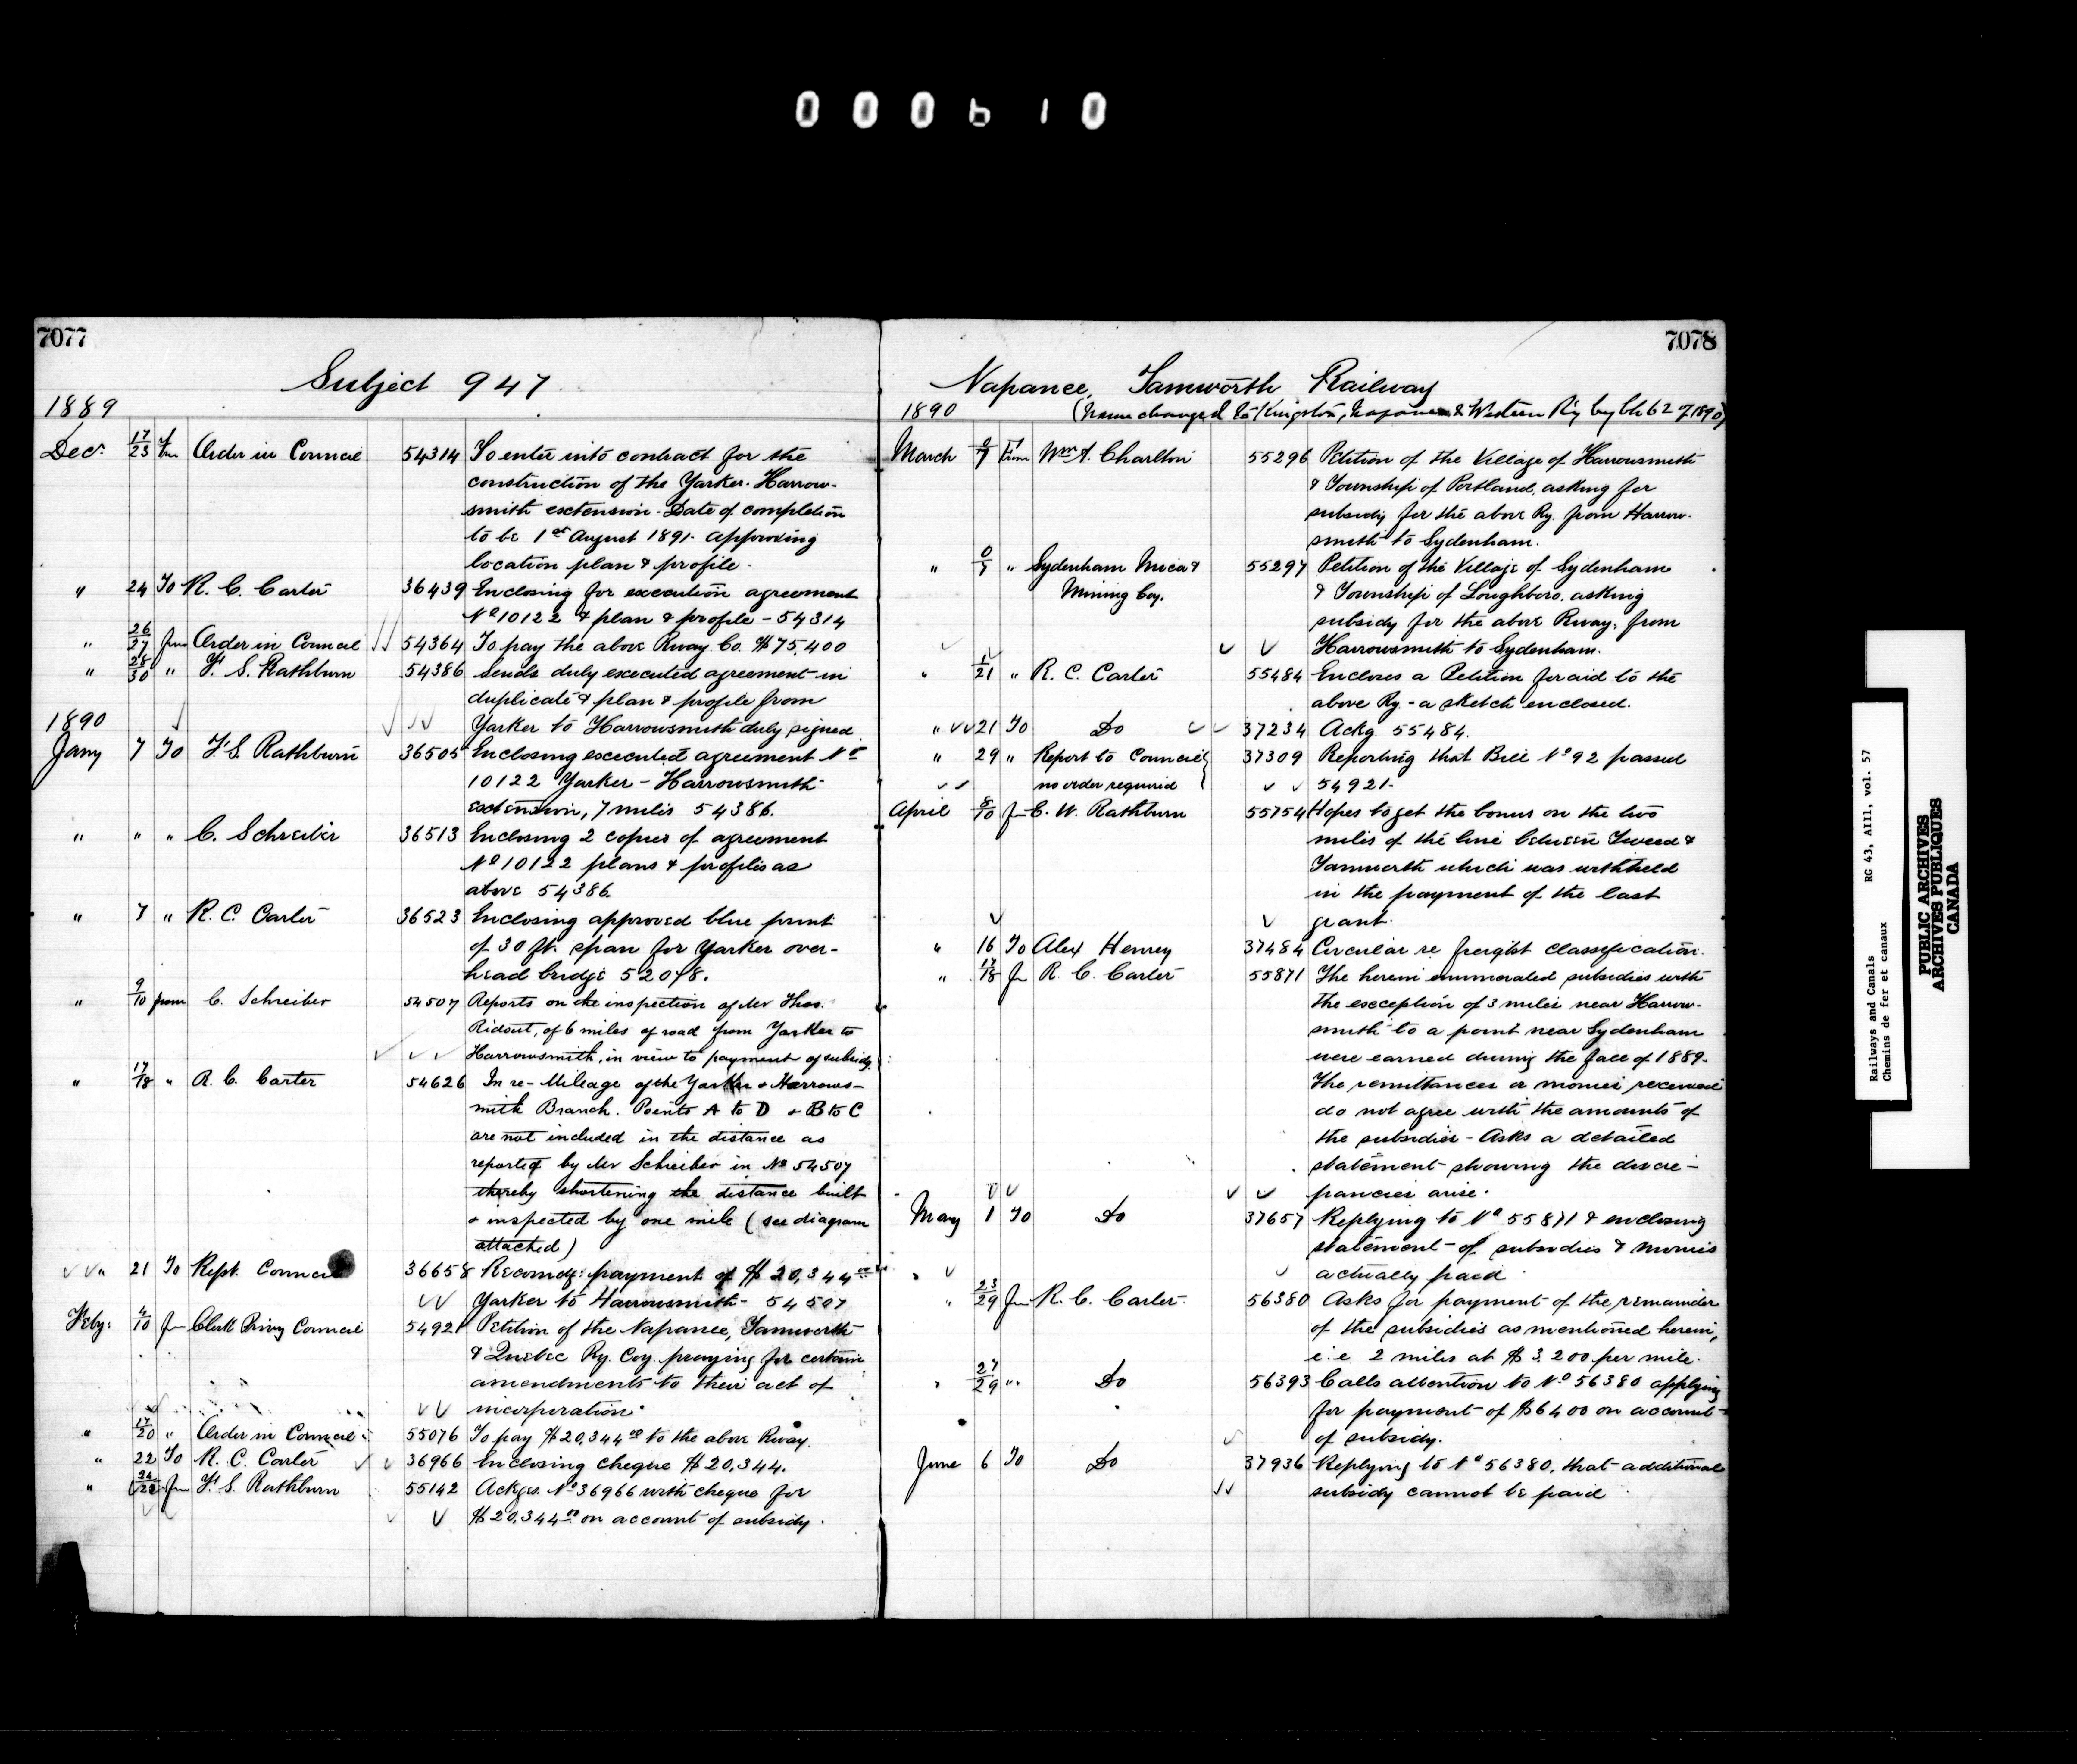 000610
7077
Subject 947
1889
Decr 17/23 from Order in Council 54314 To enter into contract for the
construction of the Yarker-Harrow-
smith extension. Date of completion
to be 1st August 1891. approving
location plan & profile.
" 24 To R. C. Carter 36439 Enclosing for execution agreement
No 10122 & plan & profile - 54314
" 26/27 from Order in Council 54364 To pay the above Rway. Co. $75,400
" 28/30 " F. S. Rathburn 54386 Sends duly executed agreement in
duplicate & plan & profile from
1890 Yarker to Harrowsmith duly signed
Jany 7 To F. S. Rathburn 36505 Enclosing executed agreement No
10122 Yarker - Harrowsmith
extension, 7 miles 54386.
" " " C. Schreiber 36513 Enclosing 2 copies of agreement
No 10122 plans & profiles as
above 54386
" 7 " R. C. Carter 36523 Enclosing approved blue print
of 30 ft. span for Yarker over-
head bridge 52078.
" 9/10 from C. Schreiber 54507 Reports on the inspection of Mr Thos.
Ridout, of 6 miles of road from Yarker to
Harrowsmith, in view to payment of subsidy.
" 17/18 " R. C. Carter 54626 In re- Mileage of the Yarker & Harrows-
mith Branch. Points A to D & B to C
are not included in the distance as
reported by Mr Schreiber in No 54507
thereby shortening the distance built
& inspected by one mile (see diagram
attached)
" 21 To Rept. Council 36658 Recomdg: payment of $20,344.00
Yarker to Harrowsmith - 54507
Feby: 4/10 fm Clerk Privy Council 54921 Petition of the Napanee, Tamworth
& Quebec Ry. Coy. praying for certain
amendments to their act of
incorporation.
" 17/20 " Order in Council 55076 To pay $20,344.00 to the above Rway.
" 22 To R. C. Carter 36966 Enclosing cheque $20,344.
" 24/25 fm F. S. Rathburn 55142 Ackgs. No 36966 with cheque for
$20,344.00 on account of subsidy.
7078
Napanee, Tamworth Railway
1890 (Name changed to Kingston, Napanee & Western Ry by Ch 62 of 1890)
March 7 from Wm A. Charlton 55296 Petition of the Village of Harrowsmith
& Township of Portland, asking for
subsidy for the above Ry. from Harrow-
smith to Sydenham.
" 0/7 " Sydenham Mica & 55297 Petition of the Village of Sydenham
Mining Coy. & Township of Loughboro, asking
subsidy for the above Rway, from
Harrowsmith to Sydenham.
" 1/21 " R. C. Carter 55484 Encloses a Petition for aid to the
above Ry. - a sketch enclosed.
" 21 To Do 37234 Ackg. 55484.
" 29 " Report to Council 37309 Reporting that Bill No 92 passed
no order required 54921.
April 8/10 fm E. W. Rathburn 55754 Hopes to get the bonus on the two
miles of the line between Tweed &
Tamworth which was withheld
in the payment of the last
grant.
" 16 To Alex Henrey 37484 Circular re freight classification.
" 17/18 fm R. C. Carter 55871 The herein enumerated subsidies with
the exception of 3 miles near Harrow-
smith to a point near Sydenham
were earned during the fall of 1889.
The remittances or monies received
do not agree with the amounts of
the subsidies - Asks a detailed
statement showing the discre-
pancies arise.
May 1 To Do 37657 Replying to No 55871 & enclosing
statement of subsidies & monies
actually paid
" 23/29 fm R. C. Carter. 56380 Asks for payment of the remainder
of the subsidies as mentioned herein,
i.e 2 miles at $3,200 per mile.
" 27/29 " Do 56393 Calls attention to No 56380 applying
for payment of $6400 on account
of subsidy.
June 6 To Do 37936 Replying to No 56380, that additional
subsidy cannot be paid
Railways and Canals RG 43, AIII, vol. 57
Chemins de fer et canaux
PUBLIC ARCHIVES
ARCHIVES PUBLIQUES
CANADA